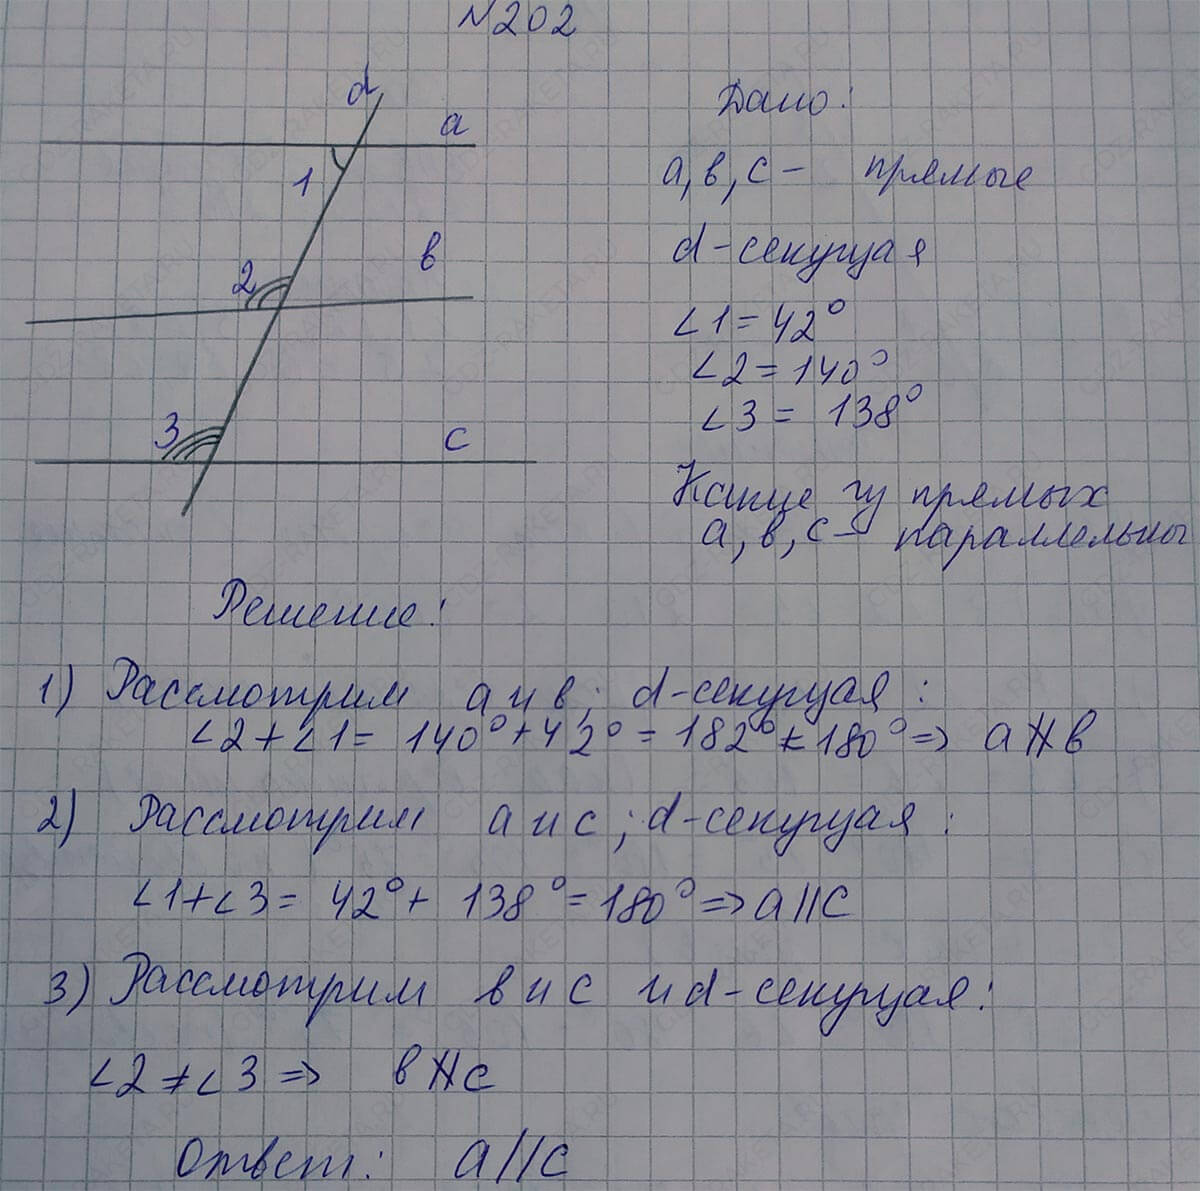 №202
d
a
1
2
в
3
c
Дано:
а, в, с - прямые
d-секущая
∠1 = 42°
∠2 = 140°
∠3 = 138°
Какие из прямых
а, в, с - параллельны
Решение:
1) Рассмотрим а и в; d-секущая:
∠2 + ∠1 = 140° + 42° = 182° ≠ 180° => a ∦ в
2) Рассмотрим а и с; d-секущая:
∠1 + ∠3 = 42° + 138° = 180° => a || c
3) Рассмотрим в и с и d-секущая:
∠2 ≠ ∠3 => в ∦ c
Ответ: a || c